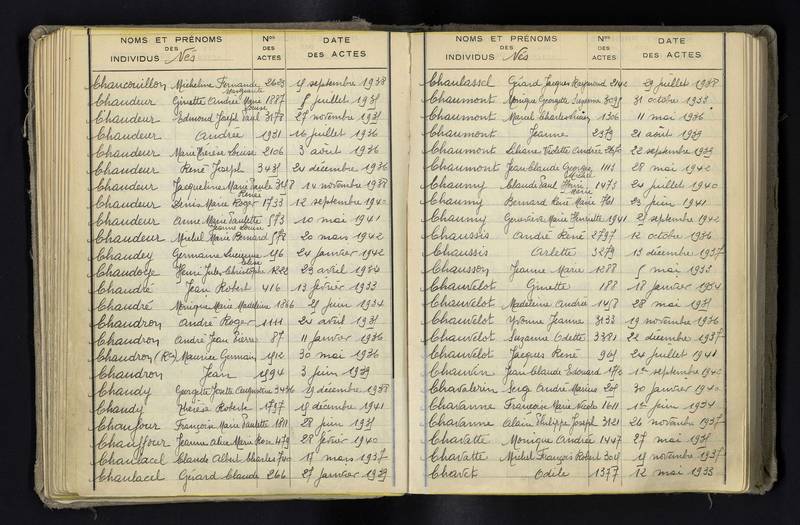 NOMS ET PRÉNOMS DES INDIVIDUS Nés
Nos DES ACTES
DATE DES ACTES
Chancouillon Micheline Fernande Marguerite 2623 septembre 1938
Chandeur Ginette Andrée Marie Louise 1887 juillet 1931
Chandeur Edmond Joseph Paul 3178 27 novembre 1931
Chandeur Andrée 1931 16 juillet 1936
Chandeur Marie Thérèse Louise 2106 3 août 1936
Chandeur René Joseph 3431 24 décembre 1936
Chandeur Jacqueline Marie Paule Renée 14 novembre 1938
Chandeur Denis Marie Roger 1733 12 septembre 1940
Chandeur Anne Marie Paulette Jeanne Louise 573 10 mai 1941
Chandeur Michel Marie Bernard 578 20 mars 1942
Chandey Germaine Lucienne 24 janvier 1942
Chandolge Henri Jules Christophe 1222 23 avril
Chandré Jean Robert 416 13 février 1933
Chandré Monique Marie Madeleine 1866 juin 1934
Chandron André Roger 1111 24 avril 1931
Chandron André Jean Pierre 87 11 janvier 1936
Chandron Maurice Germain 1912 30 mai 1936
Chandron Jean 1594 3 juin 1939
Chandy Georgette Josette Augustine 3436 décembre 1938
Chandy Thérèse Roberte 1797 décembre 1941
Chanfour Françoise Marie Paulette 1811 28 juin 1931
Chauffour Jeanne Alice Marie Rose 479 28 février 1940
Chanlacel Claude Albert Charles 740 17 mars 1937
Chanlacel Gérard Claude 266 27 janvier 1939
NOMS ET PRÉNOMS DES INDIVIDUS Nés
Nos DES ACTES
DATE DES ACTES
Chanlassel Gérard Jacques Raymond 2142 29 juillet 1938
Chaumont Monique Georgette Suzanne 31 octobre 1933
Chaumont Marcel Charles 1306 11 mai 1936
Chaumont Jeanne 2379 21 août 1939
Chaumont Liliane Violette Andrée 22 septembre 1939
Chaumont Jean Claude Georges 1113 28 mai 1942
Chaunny Claude Paul Henri Marie 1473 24 juillet 1940
Chaunny Bernard René Marie 761 23 juin 1941
Chaunny Geneviève Marie Henriette 1941 septembre 1942
Chaussis André René 2797 12 octobre 1936
Chaussis Arlette 3279 13 décembre 1937
Chausson Jeanne Marie 1288 mai 1933
Chauvelot Ginette 188 18 janvier 1934
Chauvelot Madeleine Andrée 28 mai 1931
Chauvelot Yvonne Jeanne 3133 19 novembre 1936
Chauvelot Suzanne Odette 3381 22 décembre 1937
Chauvelot Jacques René 969 24 juillet 1941
Chauvin Jean Claude Edouard 1er septembre 1940
Chavalerin Serg André Marius 30 janvier 1940
Chavanne Françoise Marie Nicole 1611 1er juin 1934
Chavanne Alain Philippe Joseph 3121 26 novembre 1937
Chavatte Monique Andrée 1447 27 mai 1931
Chavatte Michel François Robert novembre 1937
Chavet Odile 1377 12 mai 1933